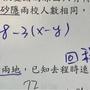 砂隆兩校人數相同，
8-3(x-y)
回
兩地，已知去程時速